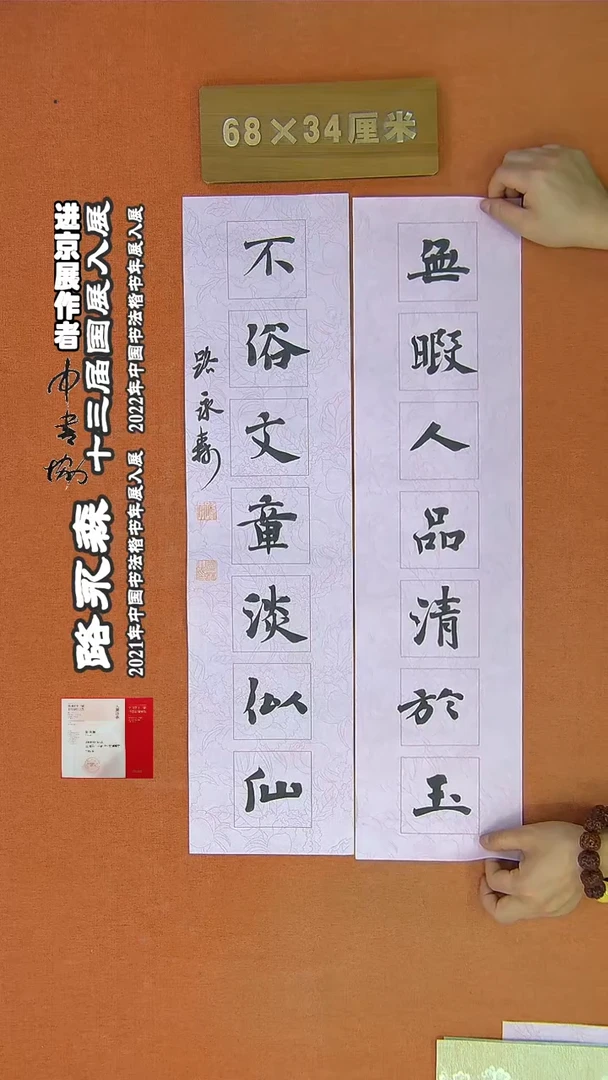 68×34厘米
無暇人品清於玉
不俗文章淡似仙
路永森
进京展作者
中书协
路永森
十三届国展入展
2021年中国书法楷书年展入展
2022年中国书法楷书年展入展